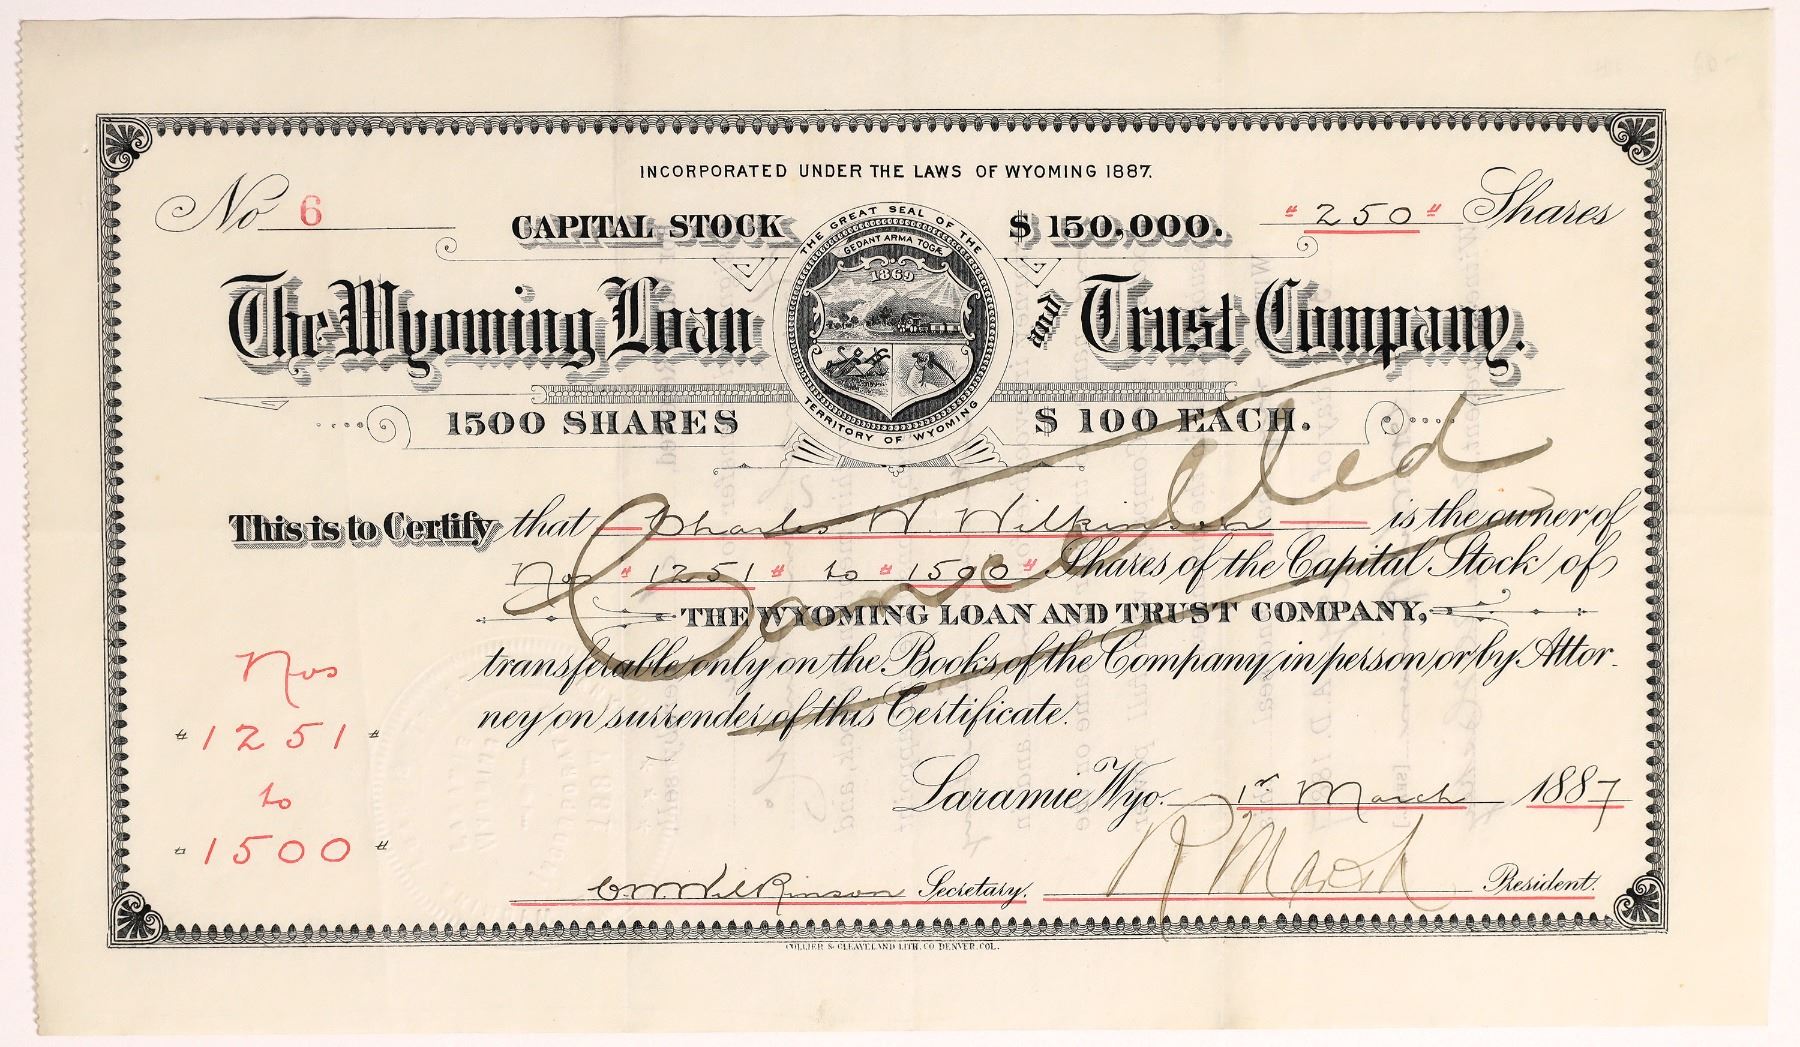 INCORPORATED UNDER THE LAWS OF WYOMING 1887.
No 6
CAPITAL STOCK $150,000.
"250" Shares
THE GREAT SEAL OF THE
CEDANT ARMA TOGÆ
1869
TERRITORY OF WYOMING
The Wyoming Loan and Trust Company.
1500 SHARES $100 EACH.
Cancelled
This is to Certify that Charles W. Wilkinson is the owner of
Nos "1251" to "1500" Shares of the Capital Stock of
THE WYOMING LOAN AND TRUST COMPANY,
transferable only on the Books of the Company in person or by Attor-
ney on surrender of this Certificate.
Nos
"1251"
to
"1500"
Laramie, Wyo. 1st March 1887
C.W. Wilkinson Secretary. R Marsh President.
COLLIER & CLEAVELAND LITH. CO DENVER. COL.